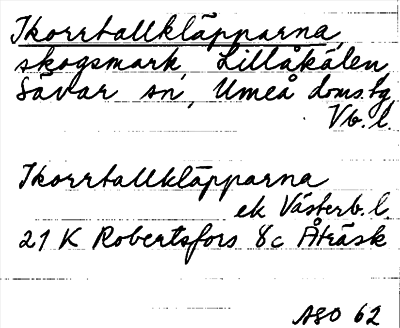 Ikorrtallkläpparna,
skogsmark, Lillåkälen,
Sävar sn, Umeå doms.tg
Vb. l.
Ikorrtallkläpparna
ek Västerb. l.
21 K Robertsfors 8c Åträsk
ASO 62